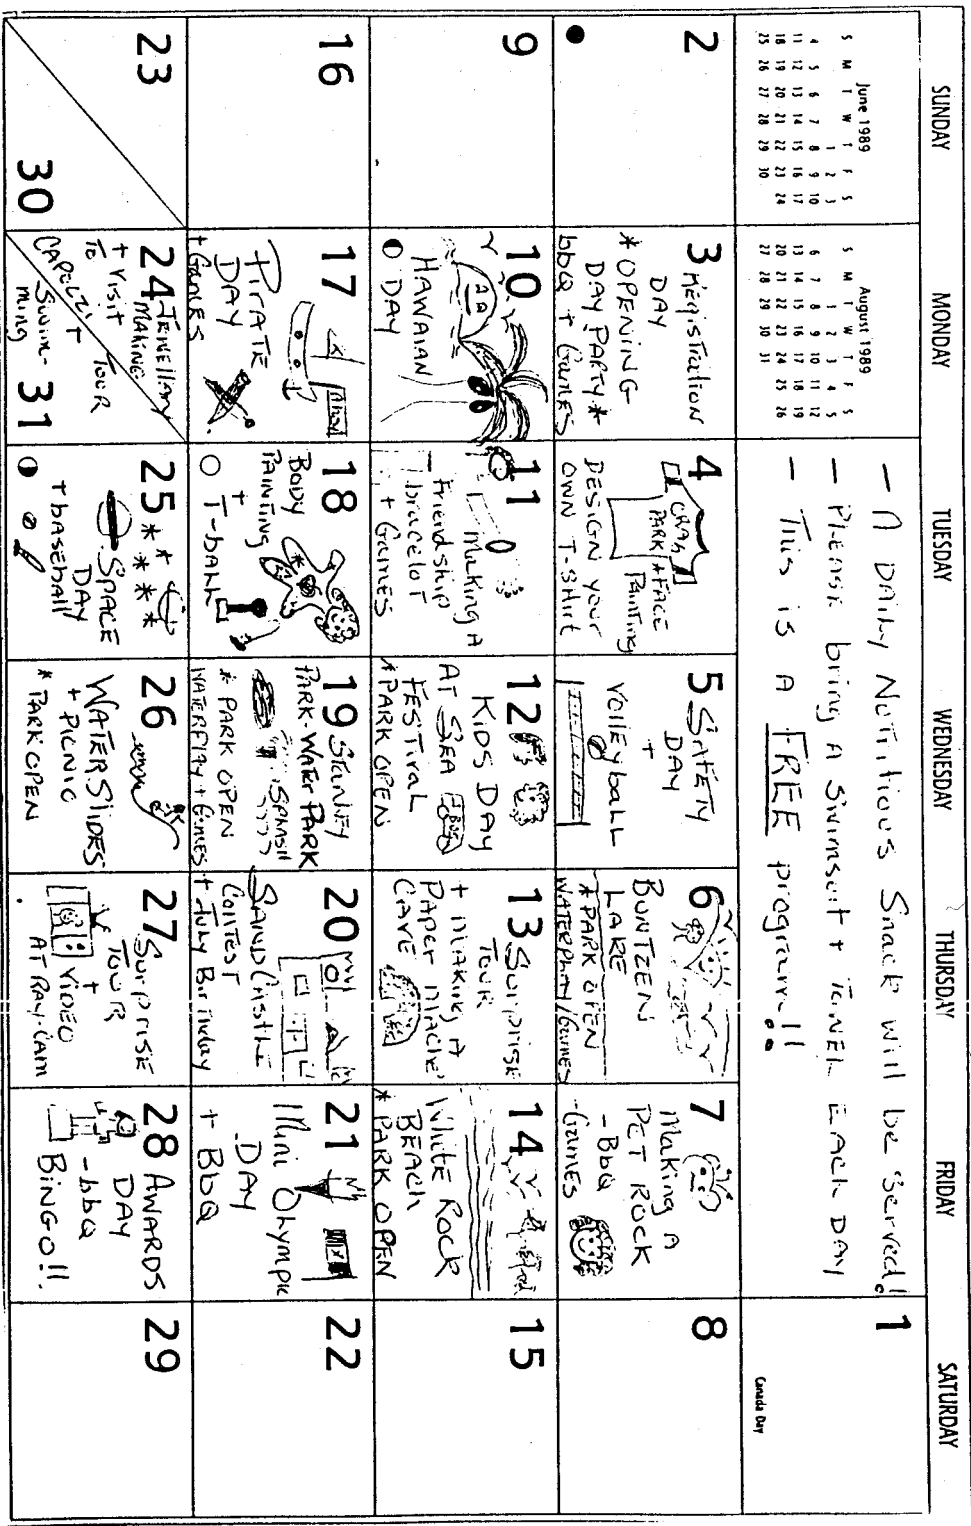 SUNDAY MONDAY TUESDAY WEDNESDAY THURSDAY FRIDAY SATURDAY
June 1989
S M T W T F S
1 2 3
4 5 6 7 8 9 10
11 12 13 14 15 16 17
18 19 20 21 22 23 24
25 26 27 28 29 30
August 1989
S M T W T F S
1 2 3 4 5
6 7 8 9 10 11 12
13 14 15 16 17 18 19
20 21 22 23 24 25 26
27 28 29 30 31
- A DAily Nutritious Snack will be served!
- Please bring A Swimsuit + Towel EACH DAY
- This is A FREE program!!
1
Canada Day
2
3 Registration
DAY
*OPENING
DAY PARTY*
bbQ + Games
4
CRAB
PARK + FACE
Painting
DESIGN your
OWN T-Shirt
5 SAFETY
DAY
+
Volleyball
6
BUNTZEN
LAKE
*PARK OPEN
WATERPLAY/Games
7
Making A
PET ROCK
- BbQ
- Games
8
9
10
HAWAIAN
DAY
11
- Making A
Friendship
bracelot
+ Games
12
KIDS DAY
AT SEA
FESTIVAL
*PARK OPEN
13 Surprise
TOUR
+ making A
Paper mache
CAVE
14
White Rock
BEACH
*PARK OPEN
15
16
17
Ahoy
PIRATE
DAY
+ Games
18
BODY
PAINTING
+
T-bAll
19 Stanley
PARK-Water PARK
SPLASH
* PARK OPEN
WATERPLAY + Games
20
SAND CAStle
Contest
+ July Birthday
21
Mini Olympic
DAY
+ BbQ
22
23
30
24 Jewellary
MAKING
+ Visit
To TOUR
+
Swimming
31
25
SPACE
DAY
+ baseball
26
WATERSlides
+ PICNIC
* PARK OPEN
27 Surprise
TOUR
+
VIDEO
AT RAY-Cam
28 AWARDS
DAY
- bbQ
BINGO!!
29